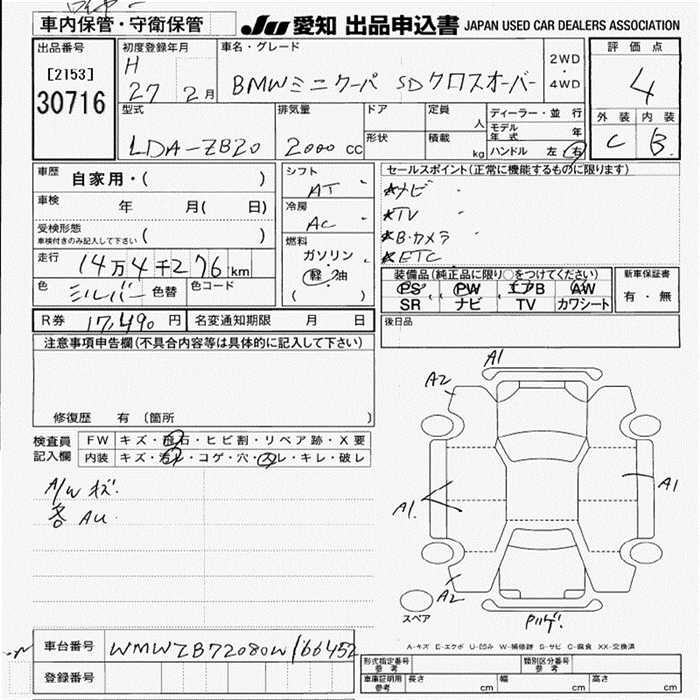 車内保管・守衛保管
JU 愛知 出品申込書 JAPAN USED CAR DEALERS ASSOCIATION
出品番号
[2153]
30716
初度登録年月
H
27 2月
車名・グレード
BMWミニクーパ SDクロスオーバー
2WD
・
4WD
評価点
4
外装 内装
C B
型式
LDA-ZB20
排気量
2000 CC
ドア
形状
定員
人
積載
kg
ディーラー・並 行
モデル年式 年
ハンドル 左 右
車歴 自家用・( )
車検 年 月( 日)
受検形態
車検付きのみ記入して下さい ( )
走行 14万4千276km
色 シルバー 色替 色コード
シフト
AT
冷房
AC
燃料
ガソリン
軽 油
( )
セールスポイント(正常に機能するものに限ります)
★ナビ
★TV
★B・カメラ
★ETC
装備品(純正品に限り○をつけてください)
PS PW エアB AW
SR ナビ TV カワシート
新車保証書
有・無
R券 17,490 円 名変通知期限 月 日
後日品
注意事項申告欄(不具合内容等は具体的に記入して下さい)
修復歴 有 (箇所 )
検査員記入欄
FW キズ・飛石・ヒビ割・リペア跡・X要
内装 キズ・汚レ・コゲ・穴・スレ・キレ・破レ
A/W キズ
各 AU
A1
A2
A1
A1
A2
スペア
A-キズ E-エクボ U-凹み W-補修跡 S-サビ C-腐食 XX-交換済
車台番号 WMWZB72080W166452
登録番号
形式指定番号
参考
類別区分番号
参考
車庫証明用
参考
長さ cm 幅 cm 高さ cm